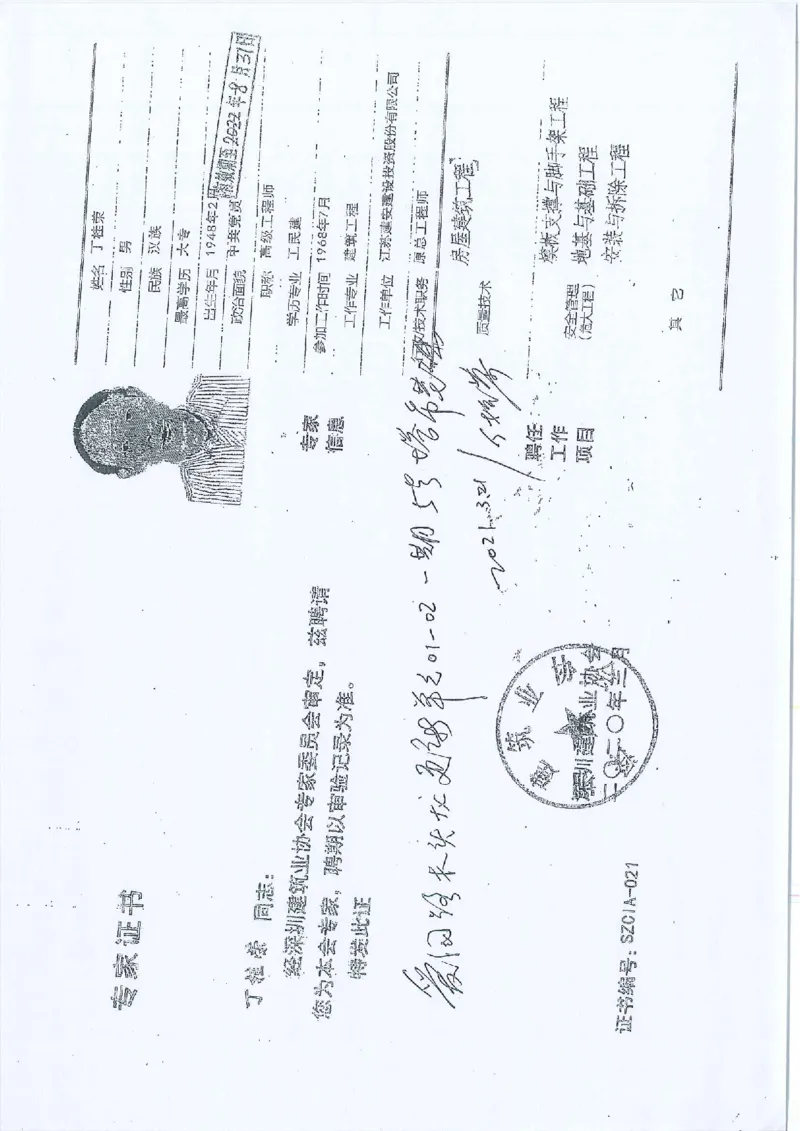 专家证书
丁桂荣 同志：
经深圳建筑业协会专家委员会审定，兹聘请
您为本会专家，聘期以审验记录为准。
特发此证
深圳建筑业协会
二〇二〇年三月
证书编号：SZCIA-021
姓名 丁桂荣
性别 男
民族 汉族
最高学历 大专
出生年月 1948年2月
政治面貌 中共党员
有效期至2022年8月31日
职称 高级工程师
学历专业 工民建
参加工作时间 1968年7月
工作专业 建筑工程
工作单位 江苏建安建设投资股份有限公司
技术职务 原总工程师
专家
信息
聘任
工作
项目
质量技术 房屋建筑工程
安全管理
（危大工程）
模板支撑与脚手架工程
地基与基础工程
安装与拆除工程
其它
更新单元01-02一期5号塔吊
2021.3.21